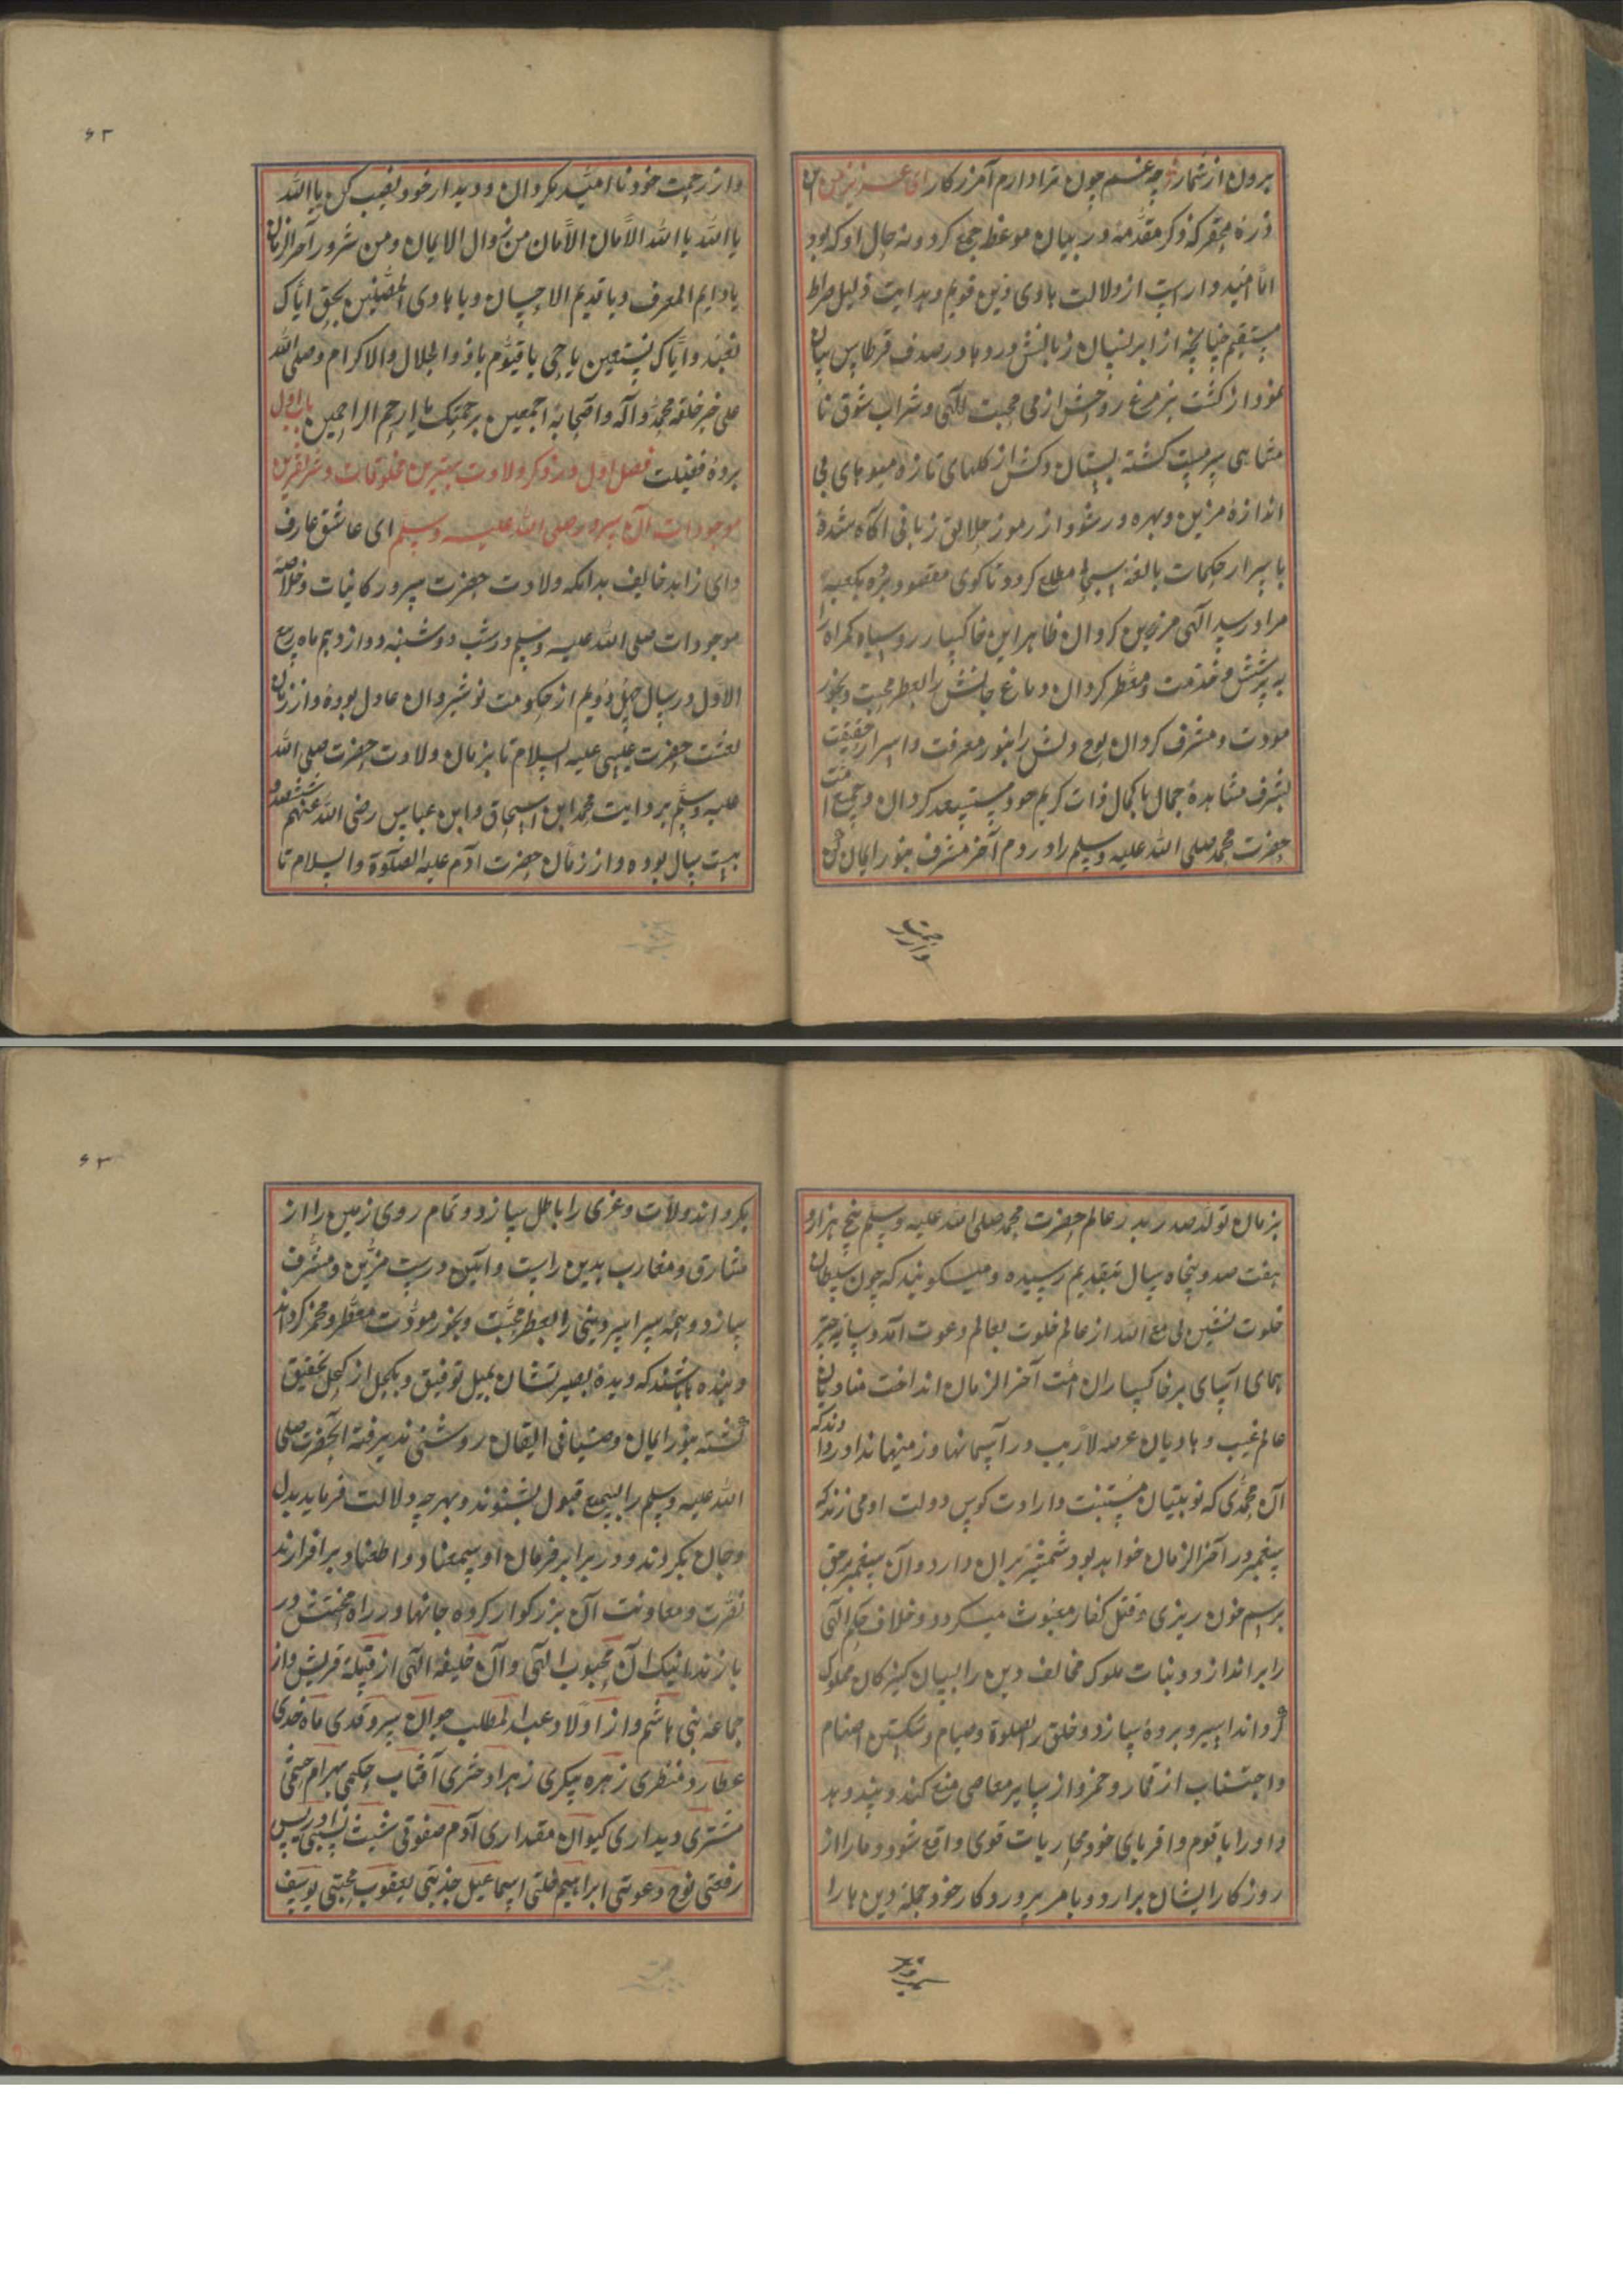 برون از شمار چه غم چون ترا دارم آمرزکار ای عزیز من این
ذره محقر که ذکر مقدمه در بیان موعظ جمع کرد و نه حال او که بود
اما امیدوار است از دلالت هادی دین قویم و هدایت دلیل صراط
مستقیم چنانچه از ابر نیسان زبانش در و بها در صدف قرطاس بیان
نمود از کشت نیز مرغ روحش از می محبت الهی و شراب شوق نا
متناهی سرمست کشته بستان دلش از کلهای تازه میوهای بی
اندازه مزین و بهره ور شود از رموز حلایق زبانی آکاه شده
با سرار حکمات بالغه سبحانی مطلع کردد تا کوی مقصود برده بکعبه
مراد رسد الهی مزین کردان ظاهر این خاکسار روسیاه کمراه را
به پرتش و خدمت و معطر کردان دماغ جانش را بعطر محبت و بخور
مودت و مشرف کردان لوح دلش را بنور معرفت و اسرار حقیقت
بشرف مشاهده جمال با کمال ذات کریم خود مستسعد کردان و جمیع امت
حضرت محمد صلی الله علیه وسلم را در دم آخر مشرف بنور ایمان کن
و از رحمت
و از رحمت خود نا امید مکردان و دیدار خود نصیب کن یا الله
یا الله یا الله الامان الامان من زوال الایمان و من شرور آخر الزمان
یا دایم المعرف و یا قدیم الاحسان و یا هادی المضلین بحق ایاک
نعبد و ایاک نستعین یا حی یا قیوم یا ذو الجلال والاکرام و صلی الله
علی خیر خلقه محمد و آله و اصحابه اجمعین برحمتک یا ارحم الراحمین باب اول
بر ده فضیلت فصل اول در ذکر ولادت بهترین مخلوقات و شریفترین
موجودات آن سرور صلی الله علیه وسلم ای عاشق عارف
و ای زاهد خایف بدانکه ولادت حضرت سرور کاینات و خلاصه
موجودات صلی الله علیه وسلم در شب دوشنبه دوازدهم ماه ربیع
الاول در سال چهل دویم از حکومت نوشیروان عادل بوده و از زمان
بعثت حضرت عیسی علیه السلام تا بزمان ولادت حضرت صلی الله
علیه وسلم بروایت محمد ابن اسحاق و ابن عباس رضی الله عنهم ششصد و
بیست سال بوده و از زمان حضرت آدم علیه الصلوة والسلام تا
بزمان تولد صدر بدر عالم حضرت محمد صلی الله علیه وسلم پنج هزار و
هفت صد و پنجاه سال بتقدیم رسیده و میکویند که چون سلطان
خلوت نشین لی مع الله از عالم خلوت بعالم دعوت آمد و سایه چتر
همای آسای بر خاکساران امت آخر الزمان انداخت منادیان
عالم غیب و هادیان عرصه لاریب در آسمانها و زمینها ندا در دادند که
آن محمدی که نوبتیان مشیت و ارادت کوس دولت او می زنند که
پیغمبر در آخر الزمان خواهد بود شمشیر بران دارد و آن پیغمبر بحق
برسم خون ریزی و قتل کفار مبعوث میکردد و خلاف حکم الهی
را براندازد و بنات ملوک مخالف دین را بسان کنیزکان مملوک
کرداند اسیر و برده سازد و خلق را بصلوة و صیام و شکستن اصنام
و اجتناب از قمار و خمر و از سایر معاصی منع کند و پند دهد
و او را با قوم و اقربای خود محاربات قوی واقع شود و مار از
روزکار ایشان برارد و بامر پروردکار خود جمله دین ها را
بکرداند و لات و عزی را باطل سازد و تمام روی زمین را از
مشارق و مغارب بدین راست و آئین درست مزین و مشرف
سازد و همه سراسر دینی را بعطر محبت و بخور مودت معطر و مخمر کرداند
و بنده باشند که دیده بصیرتشان بمیل توفیق و بکحل از کحل تحقیق
کشته بنور ایمان و ضیافی ایقان روشنی پذیرفته آنحضرت صلی
الله علیه وسلم را بسمع قبول بشنوند و بهر چه دلالت فرماید بدل
و جان بکروند و در برابر فرمان او سمعنا و اطعنا بر افرازند
نصرت و معاونت آن بزرکوار کرده جانها در راه محبتش در
بازند اینک آن محبوب الهی و آن خلیفه الهی از قبیله قریش و از
جماعه بنی هاشم و از اولاد عبد المطلب جوان سرو قدی ماه خدی
عطارد منظری زهره پیکری زهرا دختری آفتاب حکمی بهرام حشمتی
مشتری دیداری کیوان مقداری آدم صفوتی شیث نسبی ادریس
رفعتی نوح دعوتی ابراهیم خلتی اسماعیل جذبتی یعقوب محبتی یوسف